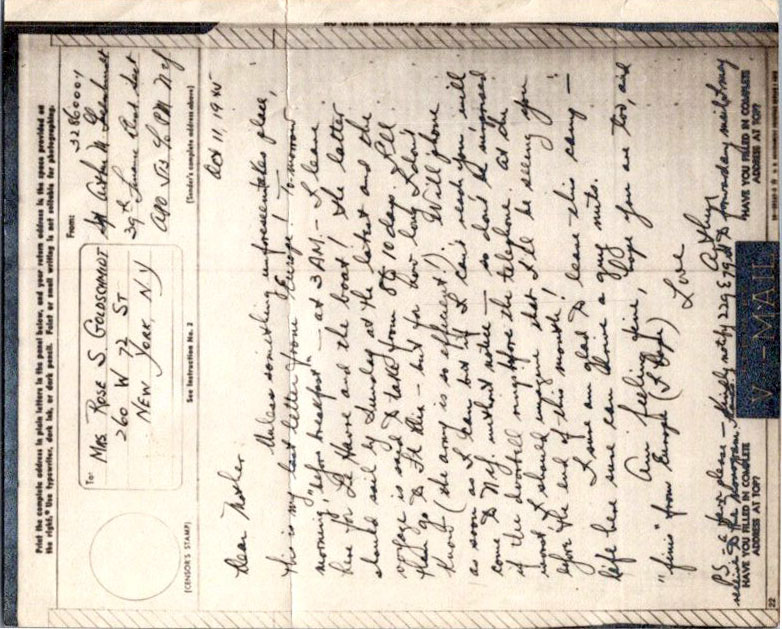 Print the complete address in plain letters in the panel below, and your return address in the space provided on
the right. Use typewriter, dark ink, or dark pencil. Faint or small writing is not suitable for photographing.
To:
MRS ROSE S. GOLDSCHMIDT
260 W 72 ST
NEW YORK, N Y
From:
32860004
39th
Oct 11, 1945
(CENSOR'S STAMP)
See Instruction No. 2
(Sender's complete address above)
Dear Mother
Unless something unforeseen takes place,
this is my last letter from Europe! Tomorrow
morning, "before breakfast" — at 3 AM. — I leave
here for Le Havre and the boat! The latter
should sail by Sunday at the latest and the
voyage is said to take from 8 to 10 days. I'll
then go to Ft Dix — but for how long I don't
know (the army is so efficient!). Will phone
as soon as I can but if I can't reach you, will
come to N.Y. without notice — so don't be surprised
if the doorbell rings before the telephone. At the
worst I should imagine that I'll be seeing you
before the end of this month!
I sure am glad to leave this camp —
life here sure can drive a guy nuts.
Am feeling fine, hope you are too, and
"finis" from Europe (I hope)
Love
Arthur
P.S. — a favor please — kindly notify
HAVE YOU FILLED IN COMPLETE
ADDRESS AT TOP?
V - MAIL
HAVE YOU FILLED IN COMPLETE
ADDRESS AT TOP?
22